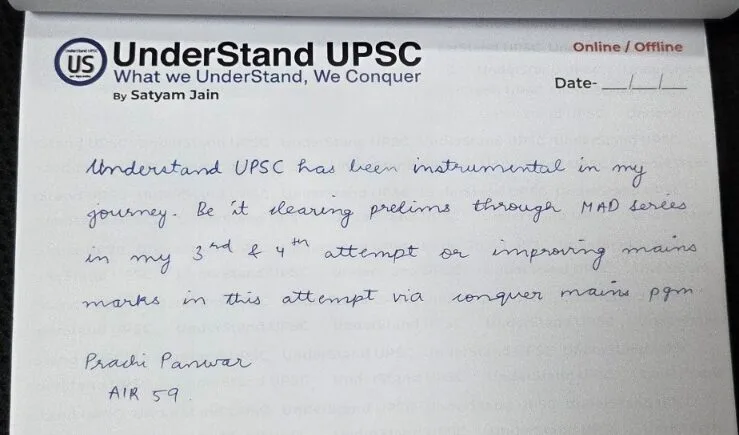 US
UnderStand UPSC
What we UnderStand, We Conquer
By Satyam Jain
Online / Offline
Date- __/__/__
Understand UPSC has been instrumental in my
journey. Be it clearing prelims through MAD series
in my 3rd & 4th attempt or improving mains
marks in this attempt via conquer mains pgm
Prachi Panwar
AIR 59